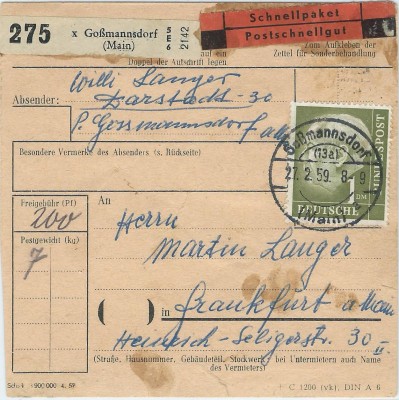 275 x Goßmannsdorf
(Main)
SE6
2142
Schnellpaket
Postschnellgut
auf ein
Zum Aufkleben der
Doppel der Aufschrift legen
Zettel für Sonderbehandlung
Willi Langer
Absender: Darstadt - 30
P. Gossmannsdorf a/M
Besondere Vermerke des Absenders (s. Rückseite)
Goßmannsdorf
(13a)
27.2.59. 8-9
(Main)
DEUTSCHE
BUNDESPOST
DM
Freigebühr (Pf)
200
Postgewicht (kg)
7
An
Herrn
Martin Langer
in
Frankfurt a Main
Heinrich-Seligerstr. 30 II
(Straße, Hausnummer, Gebäudeteil, Stockwerk, bei Untermietern auch Name
des Vermieters)
C 1290 (vk), DIN A 6